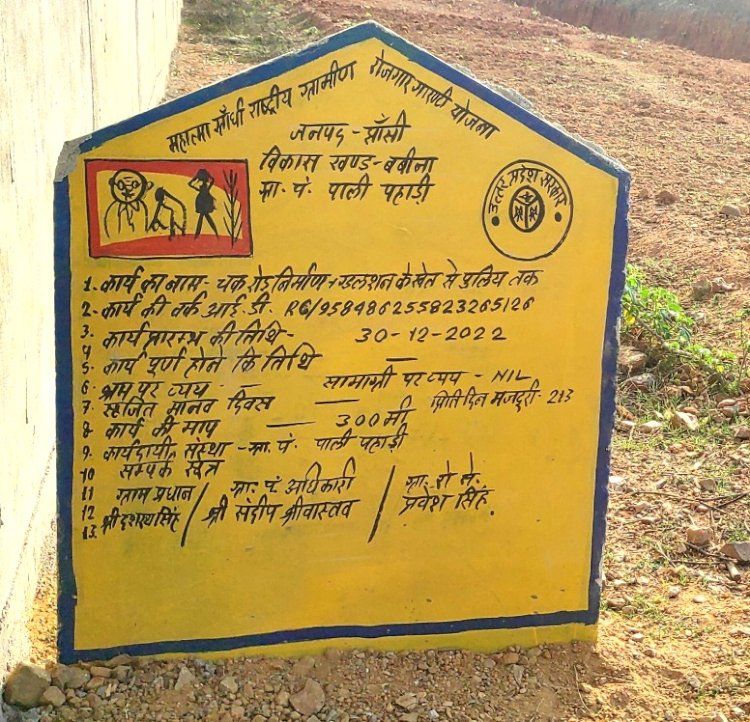 महात्मा गाँधी राष्ट्रीय ग्रामीण रोजगार गारण्टी योजना
जनपद - झाँसी
विकास खण्ड - बबीना
ग्रा. पं. पाली पहाड़ी
उत्तर प्रदेश सरकार
1. कार्य का नाम - चक रोड निर्माण के खेत से पुलिय तक
2. कार्य की वर्क आई.डी. RC/958486255823265126
3. कार्य प्रारम्भ की तिथि - 30-12-2022
4
5. कार्य पूर्ण होने कि तिथि —
6 श्रम पर व्यय - — सामाग्री पर व्यय - NIL
7. सृजित मानव दिवस — प्रिति दिन मजदूरी - 213
8 कार्य की माप — 300 मी
9. कार्यदायी संस्था - ग्रा. पं. पाली पहाड़ी
10 सम्पर्क सूत्र
11 ग्राम प्रधान / ग्रा. पं. अधिकारी / ग्रा. रो से.
12
13. श्री दशरथ सिंह / श्री संदीप श्रीवास्तव / प्रवेश सिंह.